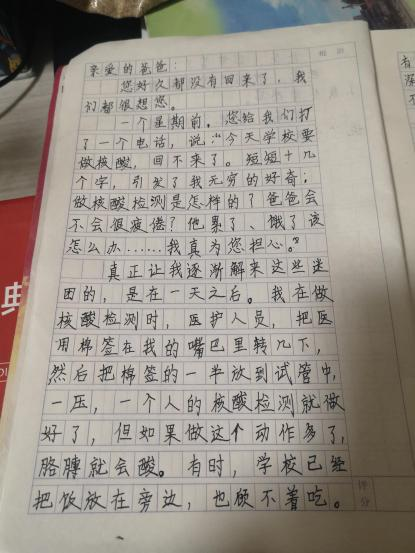 亲爱的爸爸：
您好久都没有回来了，我
们都很想您。
一个星期前，您给我们打
了一个电话，说："今天学校要
做核酸，回不来了。短短十几
个字，引发了我无穷的好奇；
做核酸检测是怎样的？爸爸会
不会很疲倦？他累了、饿了该
怎么办……我真为您担心。"
真正让我逐渐解来这些迷
团的，是在一天之后。我在做
核酸检测时，医护人员，把医
用棉签在我的嘴巴里转几下，
然后把棉签的一半放到试管中，
一压，一个人的核酸检测就做
好了，但如果做这个动作多了，
胳膊就会酸。有时，学校已经
把饭放在旁边，也顾不着吃。
评分
典